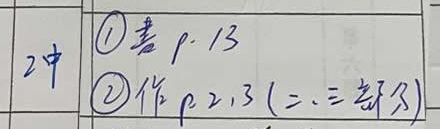 2中
①書 p.13
②作 p2,3(二、三部分)